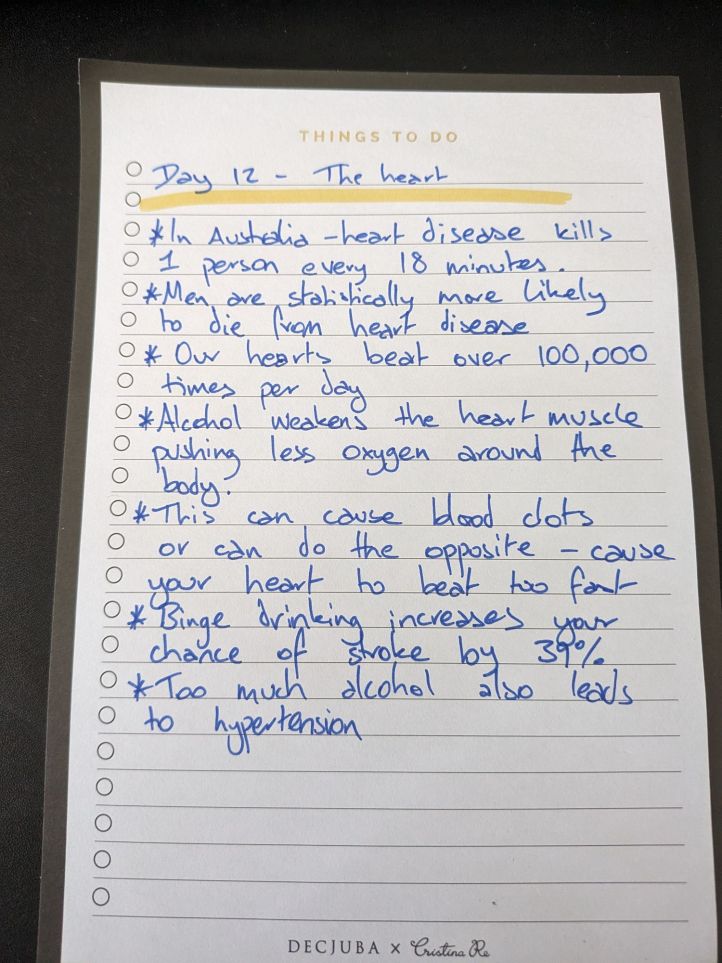 THINGS TO DO
Day 12 - The heart
*In Australia - heart disease kills
1 person every 18 minutes.
*Men are statistically more likely
to die from heart disease
* Our hearts beat over 100,000
times per day
*Alcohol weakens the heart muscle
pushing less oxygen around the
body.
*This can cause blood clots
or can do the opposite - cause
your heart to beat too fast
* Binge drinking increases your
chance of stroke by 39%
*Too much alcohol also leads
to hypertension
DECJUBA x Cristina Re